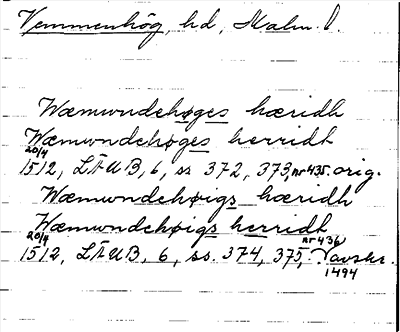 Vemmenhög, hd, Malm. l.
Wæmwndehøges hæridh
Wæmwndehøges herridt
20/4
1512, LÄUB, 6, ss 372, 373, nr 435. orig.
Wæmwndehøigs hæridh
Wæmwndehøigs herridt
20/4
1512, LÄUB, 6, ss. 374, 375, nr 436 avskr.
1494